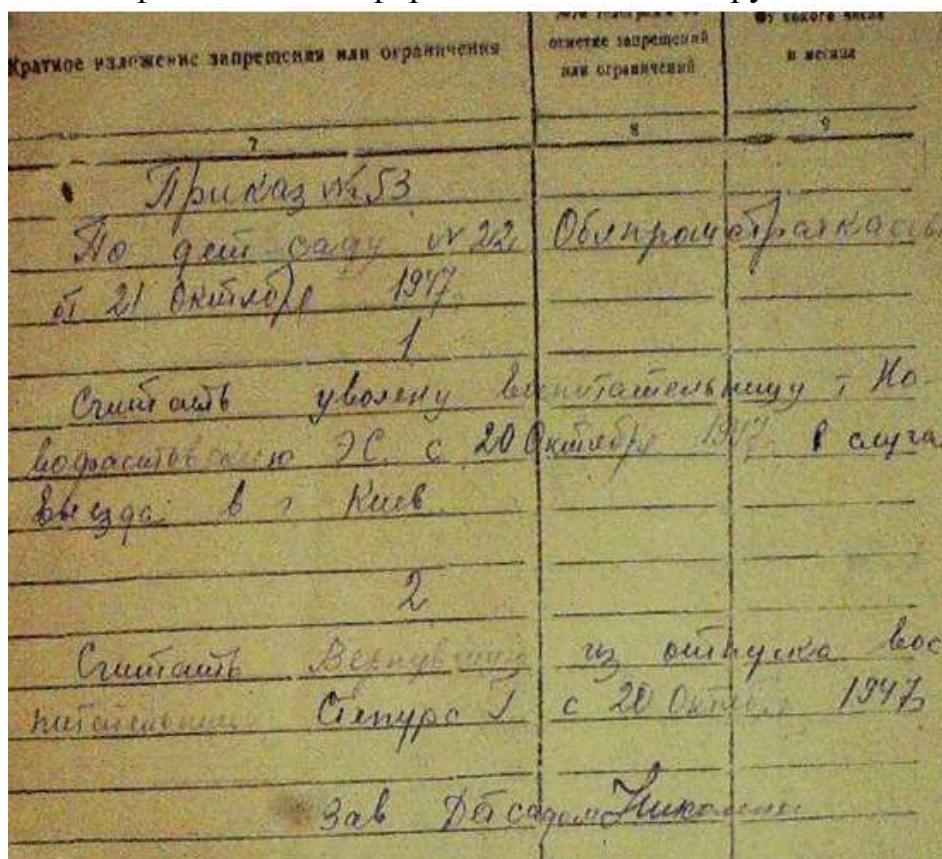 Краткое изложение запрещения или ограничения
отметке запрещений
или ограничений
какого числа
и месяца
7
8
9
Приказ № 53
По дет саду № 22 Облпромстрахкассы
от 21 Октября 1947
1
Считать уволену воспитательницу т Но-
Э.С. с 20 Октября 1947 в случа
выезда в г Киев
2
Считать Вернувшуюся из отпуска Вос
питательницу с 20 Октября 1947
Зав Дет садом